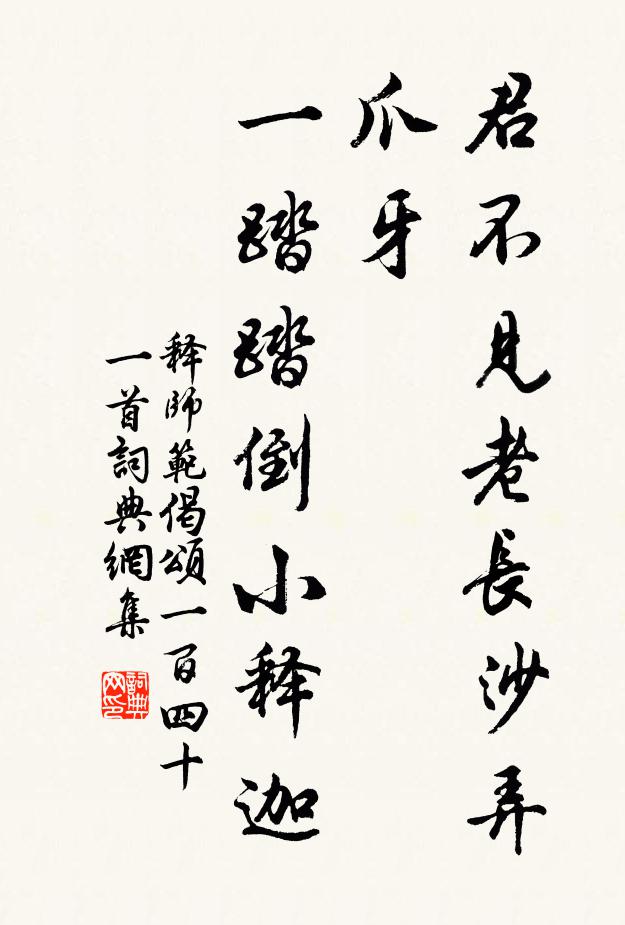 君不見老長沙弄
爪牙
一踏踏倒小释迦
释師範偈頌一百四十
一首詞典網集
詞典
网印